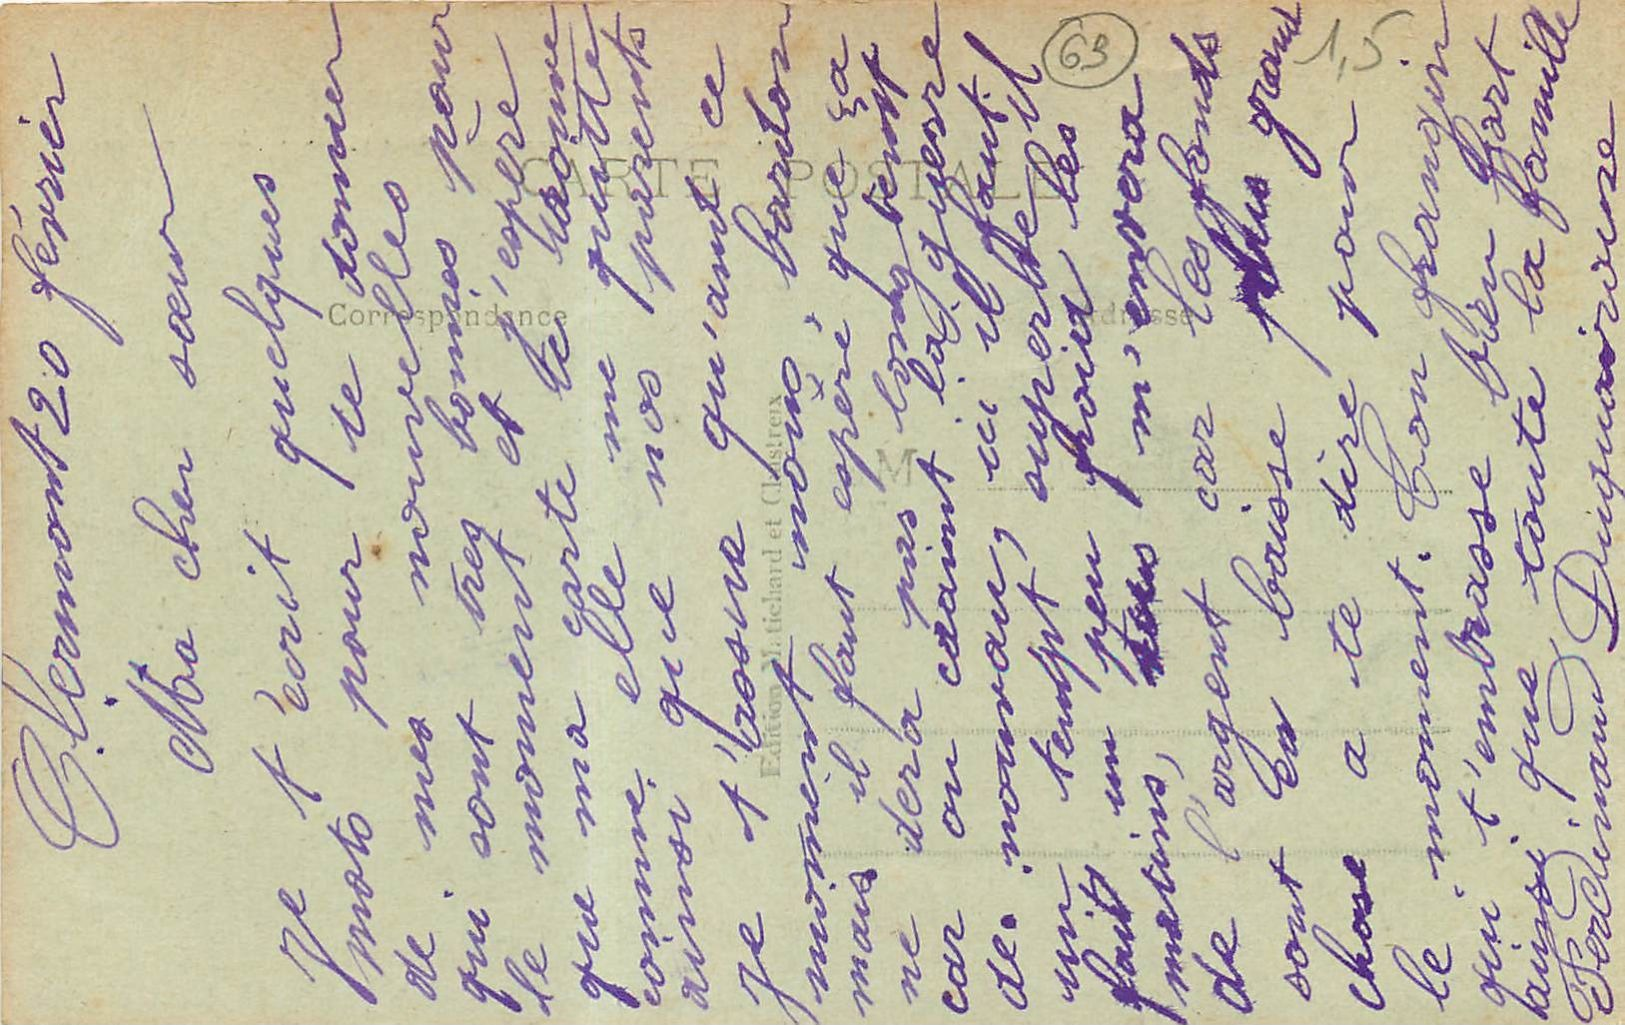 Clermont 20 février
Ma cher sœur
Je t'écrit quelques
mots pour te donner
de mes nouvelles
qui sont tres bonnes pour
le moment et j'espere
que ma carte te trouve
comme elle me quitte
ainsi que nos parents
Je t'assure qu'avant ce
moment nous barbon
mais il faut esperé que ça
ne dera pas longtempt
car on craint la guerre
de nouveau, ici il fait
un tempt, superbe il
fait un peu froid les
matins, m'envoera
de l'argent car les fonds
sont en baisse plus grand
chose a te dire pour
le moment. Ton frangin
qui t'embrasse bien fort
ainsi que toute la famille
Ferdinand
CARTE POSTALE
Correspondance
Adresse
M
63
1,5